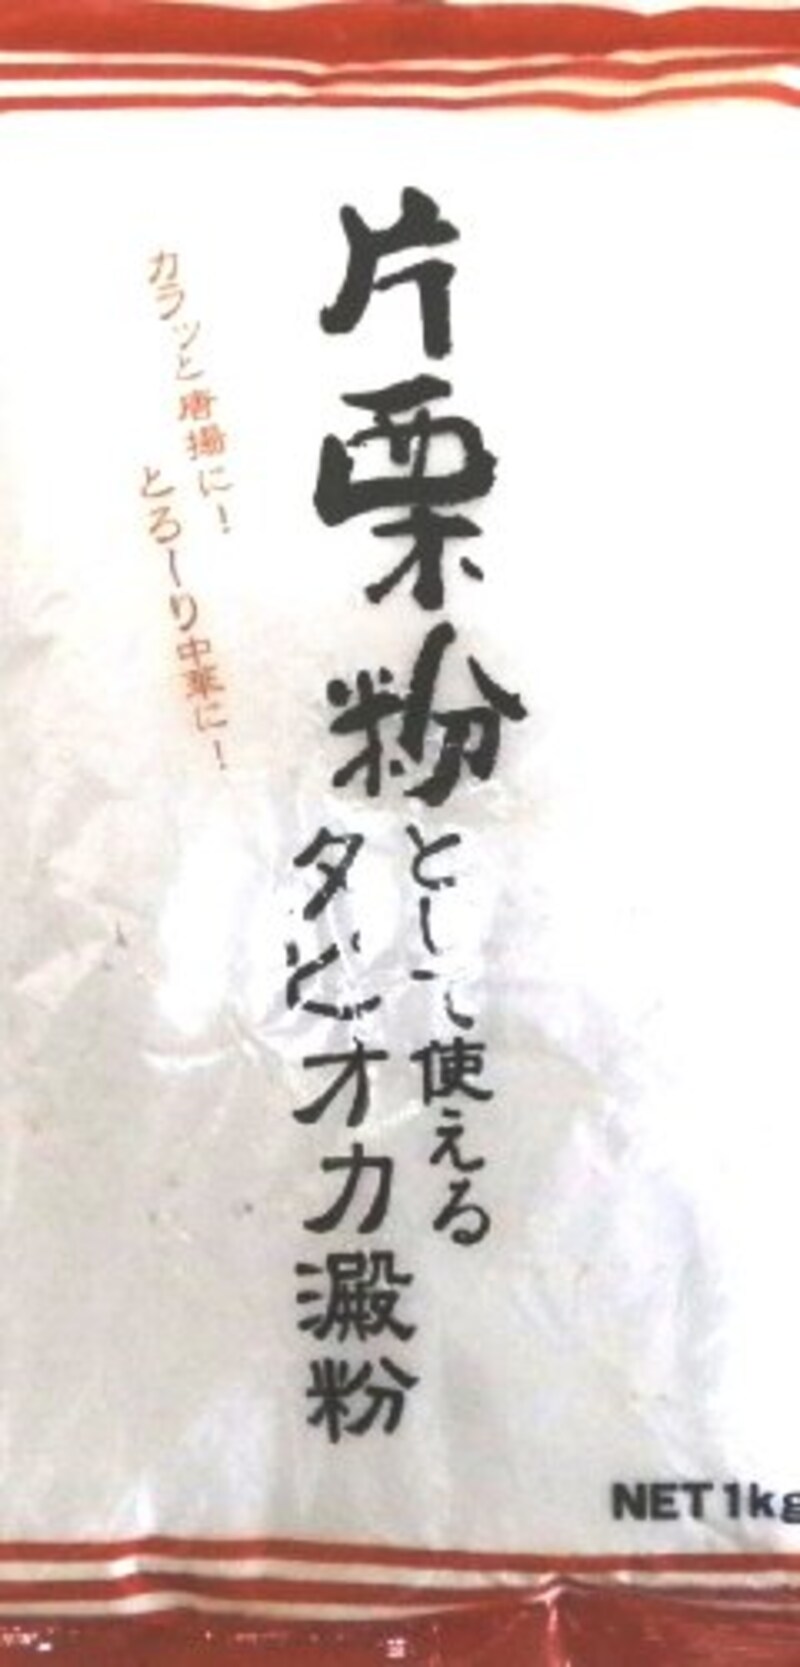 片栗粉として使える
タピオカ澱粉
カラッと唐揚に!
とろーり中華に!
NET 1kg